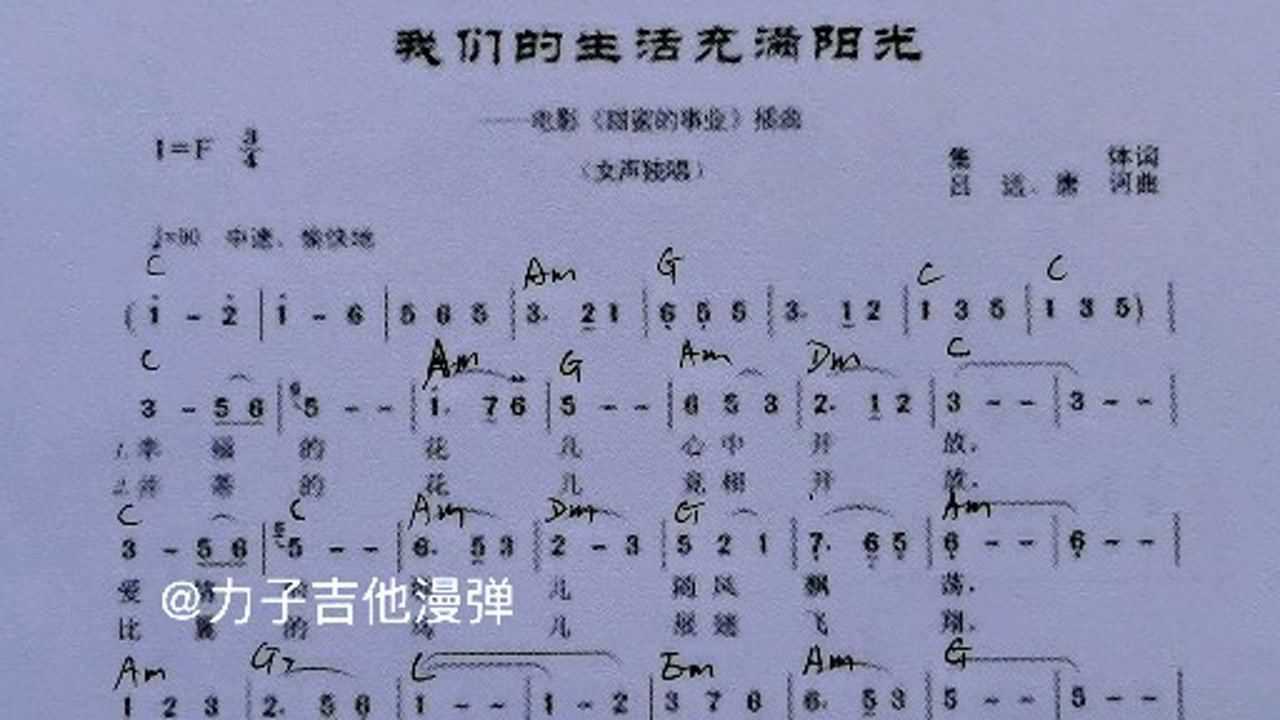 我们的生活充满阳光
——电影《甜蜜的事业》插曲
1=F 3/4
（女声独唱）
集 体词
吕 远、唐 诃曲
♩=90 中速、愉快地
C Am G C C
(1 - 2 | 1 - 6 | 5 6 5 | 3. 2 1 | 6 5 5 | 3. 1 2 | 1 3 5 | 1 3 5) |
C Am G Am Dm C
3 - 5 6 | 5 - - | 1. 7 6 | 5 - - | 6 5 3 | 2. 1 2 | 3 - - | 3 - - |
1.幸 福 的 花 儿 心 中 开 放，
2.并 蒂 的 花 儿 竞 相 开 放，
C C Am Dm G Am
3 - 5 6 | 5 - - | 6. 5 3 | 2 - 3 | 5 2 1 | 7. 6 5 | 6 - - | 6 - - |
爱 情 儿 随 风 飘 荡，
@力子吉他漫弹
比 翼 的 鸟 儿 展 翅 飞 翔，
Am G7 C Em Am G
1 2 3 | 2. 5 6 | 1 - - | 1 - 2 | 3 7 6 | 6. 5 3 | 5 - - | 5 - -